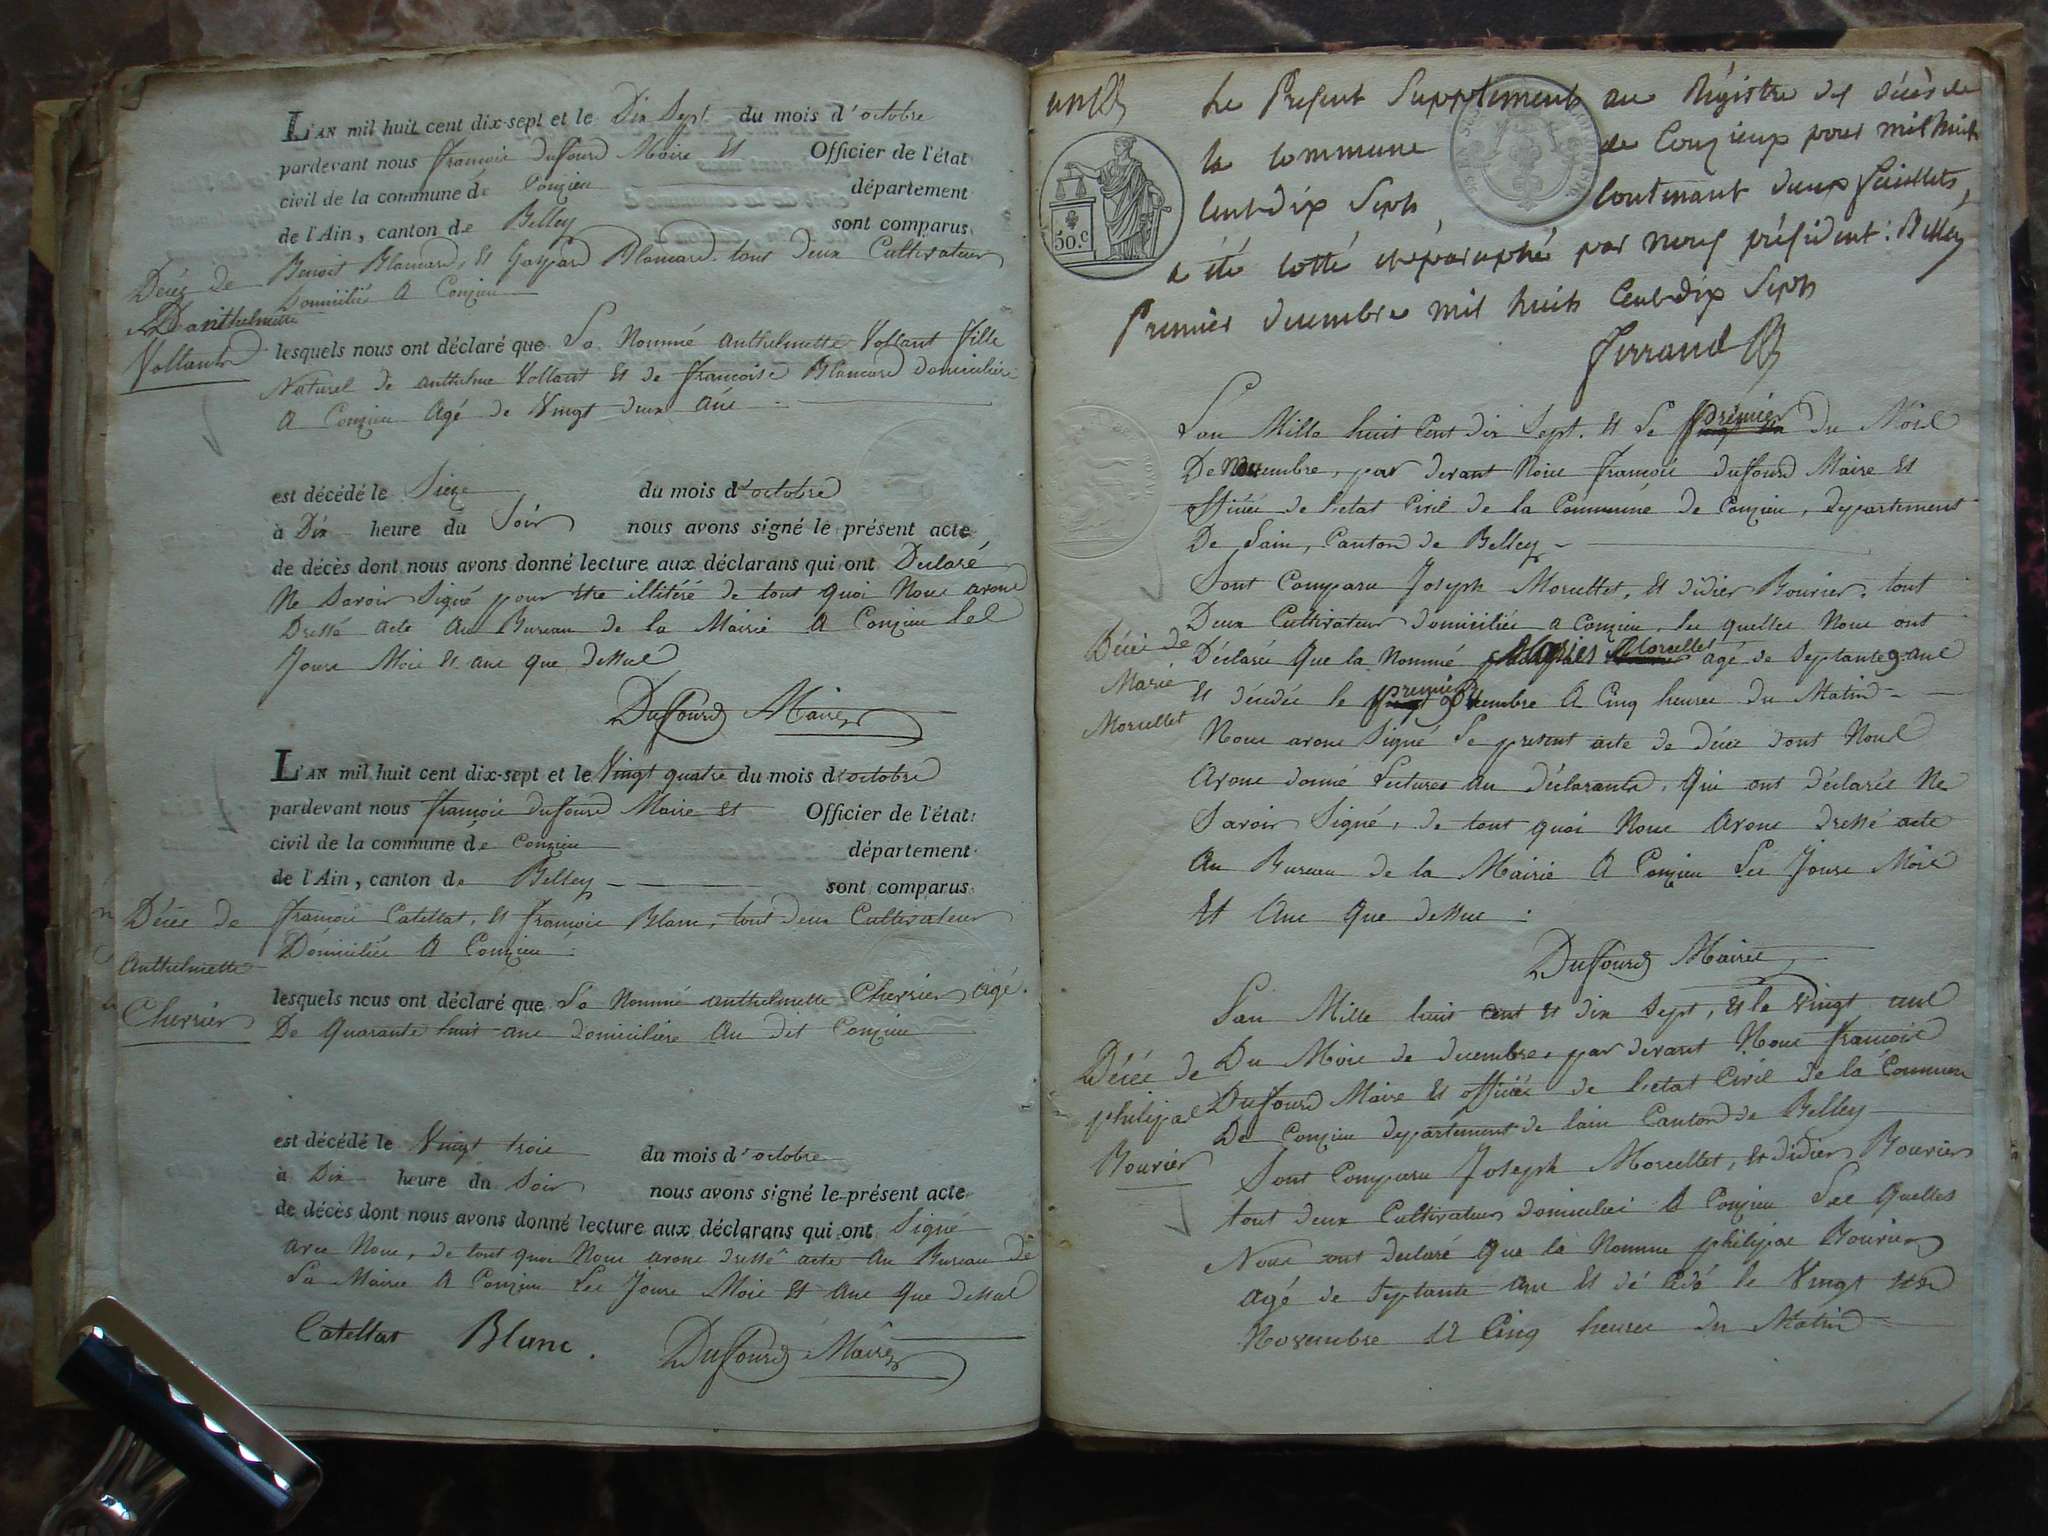 L'AN mil huit cent dix-sept et le Dix Sept du mois d'octobre
pardevant nous françois duffourd Maire Et Officier de l'état
civil de la commune de Conzieu département
de l'Ain, canton de Belley sont comparus
Benoit Blancard, Et Gaspard Blancard tout deux Cultivateur
Domiciliés A Conzieu
Décès de
D'anthelmette
Vollant
lesquels nous ont déclaré que La Nommé anthelmette Vollant fille
Naturel de anthelme Vollant Et de françoise Blancard domicilière
A Conzieu Agé de Vingt deux ans
est décédé le Sieze du mois d'octobre
à Dix heure du Soir nous avons signé le présent acte
de décès dont nous avons donné lecture aux déclarans qui ont Declaré
Ne Savoir Signé pour être illitéré de tout quoi Nous avons
Dressé acte Au Bureau de la Mairie A Conzieu les
Jours Mois Et ans que dessus
Duffourd Maire
L'AN mil huit cent dix-sept et le Vingt quatre du mois d'octobre
pardevant nous françois duffourd Maire Et Officier de l'état
civil de la commune de Conzieu département
de l'Ain, canton de Belley sont comparus
Décès de
Anthelmette
Cherrier
françois Catellat, Et françois Blanc, tout deux Cultivateur
Domiciliés A Conzieu
lesquels nous ont déclaré que La Nommé anthelmette Cherrier agé
De quarante huit ans domicilière Au dit Conzieu
est décédé le Vingt trois du mois d'octobre
à Dix heure du Soir nous avons signé le présent acte
de décès dont nous avons donné lecture aux déclarans qui ont Signé
avec Nous, de tout quoi Nous avons dressé acte Au Bureau de
La Mairie A Conzieu Les Jours Mois Et Ans que dessus
Catellat Blanc. Duffourd Maire
Le Présent Supplément au Régistre des décès de
la commune de Conzieux pour mil huit
Cent dix Sept, Contenant deux feuillets,
a été cotté et paraphé par nous président. Belley
50.c
Premier decembre mil huit Cent dix Sept
Ferrand
L'an Mille huit Cent dix Sept. Et Le premier du Mois
De Novembre, par devant Nous françois duffourd Maire Et
officié de l'etat Civil de la Commune de Conzieu, Departement
De Lain, Canton de Belley
Sont Comparu Joseph Morcellet, Et didier Bourier, tout
Deux Cultivateur domiciliés a Conzieu, les quelles Nous ont
Décès de
Marie
Morcellet
Déclarée Que la Nommé Maries Morcellet agé de Septante 9 ans
Et décédée le premier A Cinq heures du Matin
Nous avons Signé Le present acte de décès dont Nous
Avons donné Lectures au déclarants, Qui ont déclarés Ne
Savoir Signé, de tout quoi Nous Avons dressé acte
Au Bureau de la Mairie A Conzieu Les Jours Mois
Et Ans que dessus :
Duffourd Maire
L'an Mille huit cent Et dix Sept, Et le Vingt
Décès de
philipe
Bourier
Du Mois de decembre, par devant Nous françois
Duffourd Maire Et officié de l'etat Civil de la Commune
De Conzieu departement de lain Canton de Belley
Sont Comparu Joseph Morcellet, Et didier Bourier
tout deux Cultivateur domiciliés A Conzieu Les Quelles
Nous ont declaré que la Nomme philipe Bourier
Agé de Septante Ans Et dé cédé le Vingt
Novembre A Cinq heures du Matin